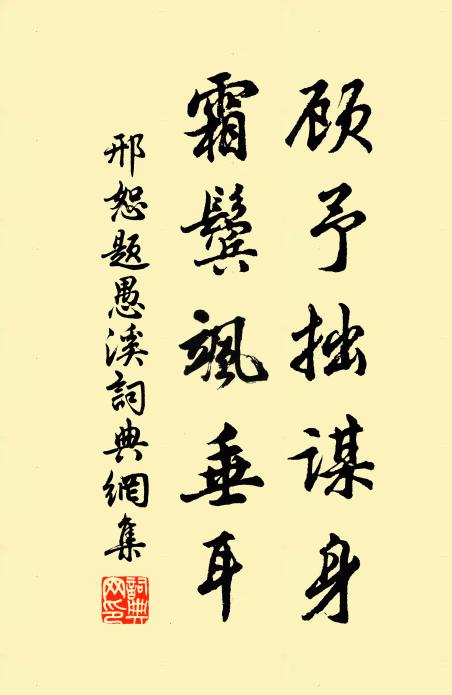 顾予拙谋身
霜鬓飒垂耳
邢恕题愚溪詞典網集
詞典网印